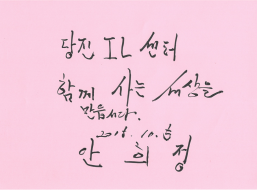 당진 IL 센터
함께 사는 세상을
만듭시다.
2016. 10. 6
안 희 정